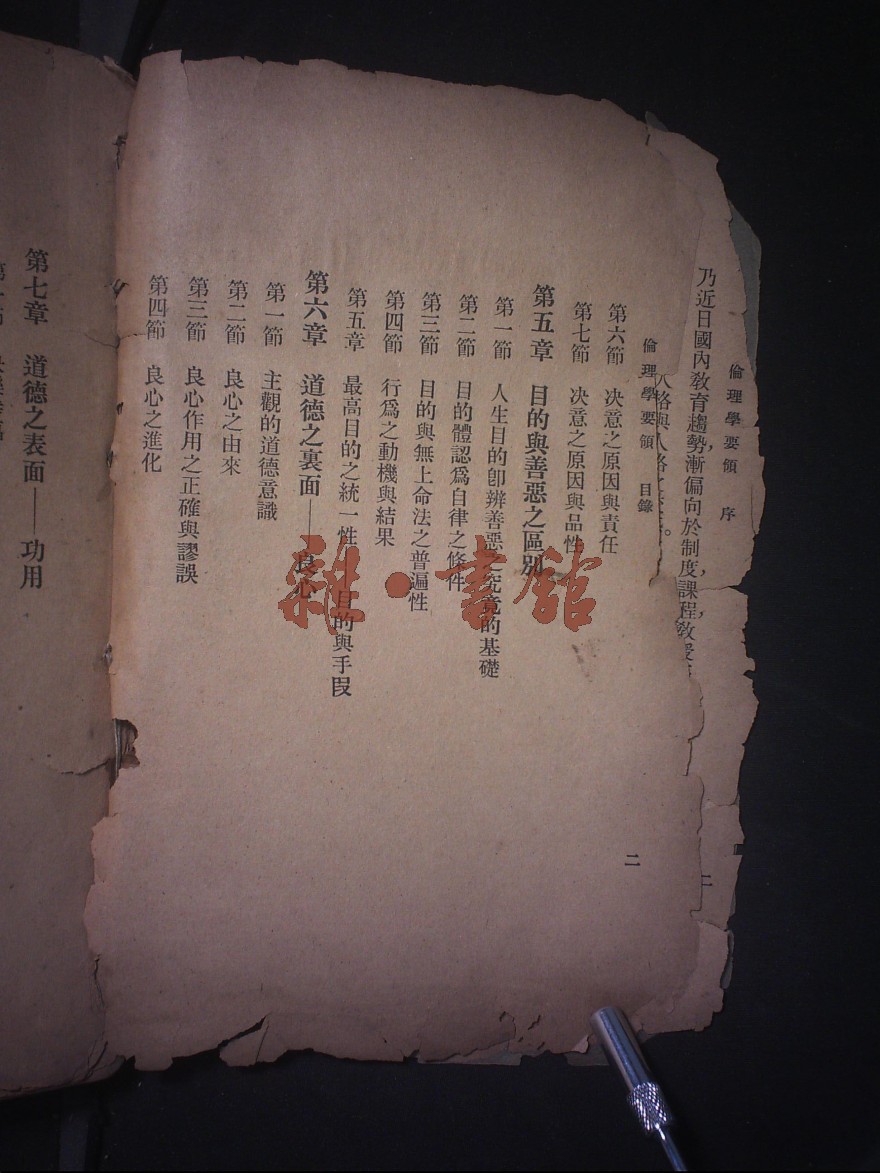 倫理學要領　序
乃近日國內教育趨勢,漸偏向於制度,課程,教
倫理學要領　目錄
二
第六節　決意之原因與責任
第七節　決意之原因與品性
第五章　目的與善惡之區別
第一節　人生目的卽辨善惡之究竟的基礎
第二節　目的體認爲自律之條件
第三節　目的與無上命法之普遍性
第四節　行爲之動機與結果
第五章　最高目的之統一性　目的與手段
第六章　道德之裏面——良心
第一節　主觀的道德意識
第二節　良心之由來
第三節　良心作用之正確與謬誤
第四節　良心之進化
第七章　道德之表面——功用
雜·書館